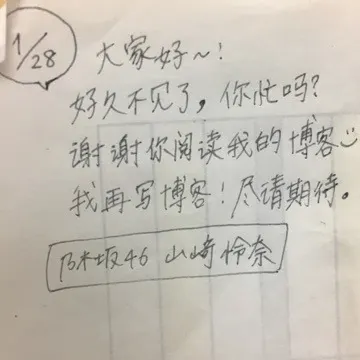 1/28
大家好～！
好久不见了，你忙吗？
谢谢你阅读我的博客☺
我再写博客！尽请期待。
乃木坂46 山崎怜奈